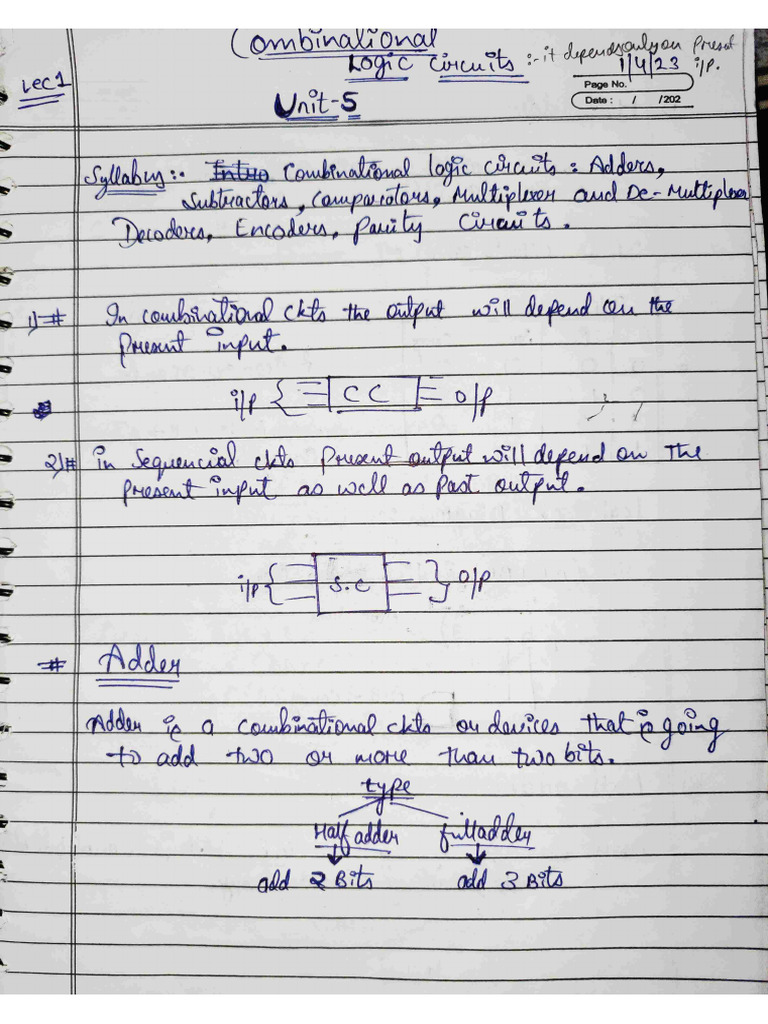 Combinational
Logic Circuits :- it depends only on Present
i/p.
1/4/23
Page No.
Date : / /202
Lec 1
Unit-5
Syllabus :- Intro Combinational logic circuits : Adders,
Subtractors, Comparators, Multiplexer and De-Multiplexer
Decoders, Encoders, Parity Circuits.
1) # In combinational ckts the output will depend on the
present input.
i/p { CC O/P
2) # in Sequencial ckts Present output will depend on The
present input as well as Past output.
i/p { S.C } O/P
# Adder
Adder is a combinational ckts or devices that is going
to add two or more than two bits.
type
Half adder fulladder
add 2 Bits add 3 Bits